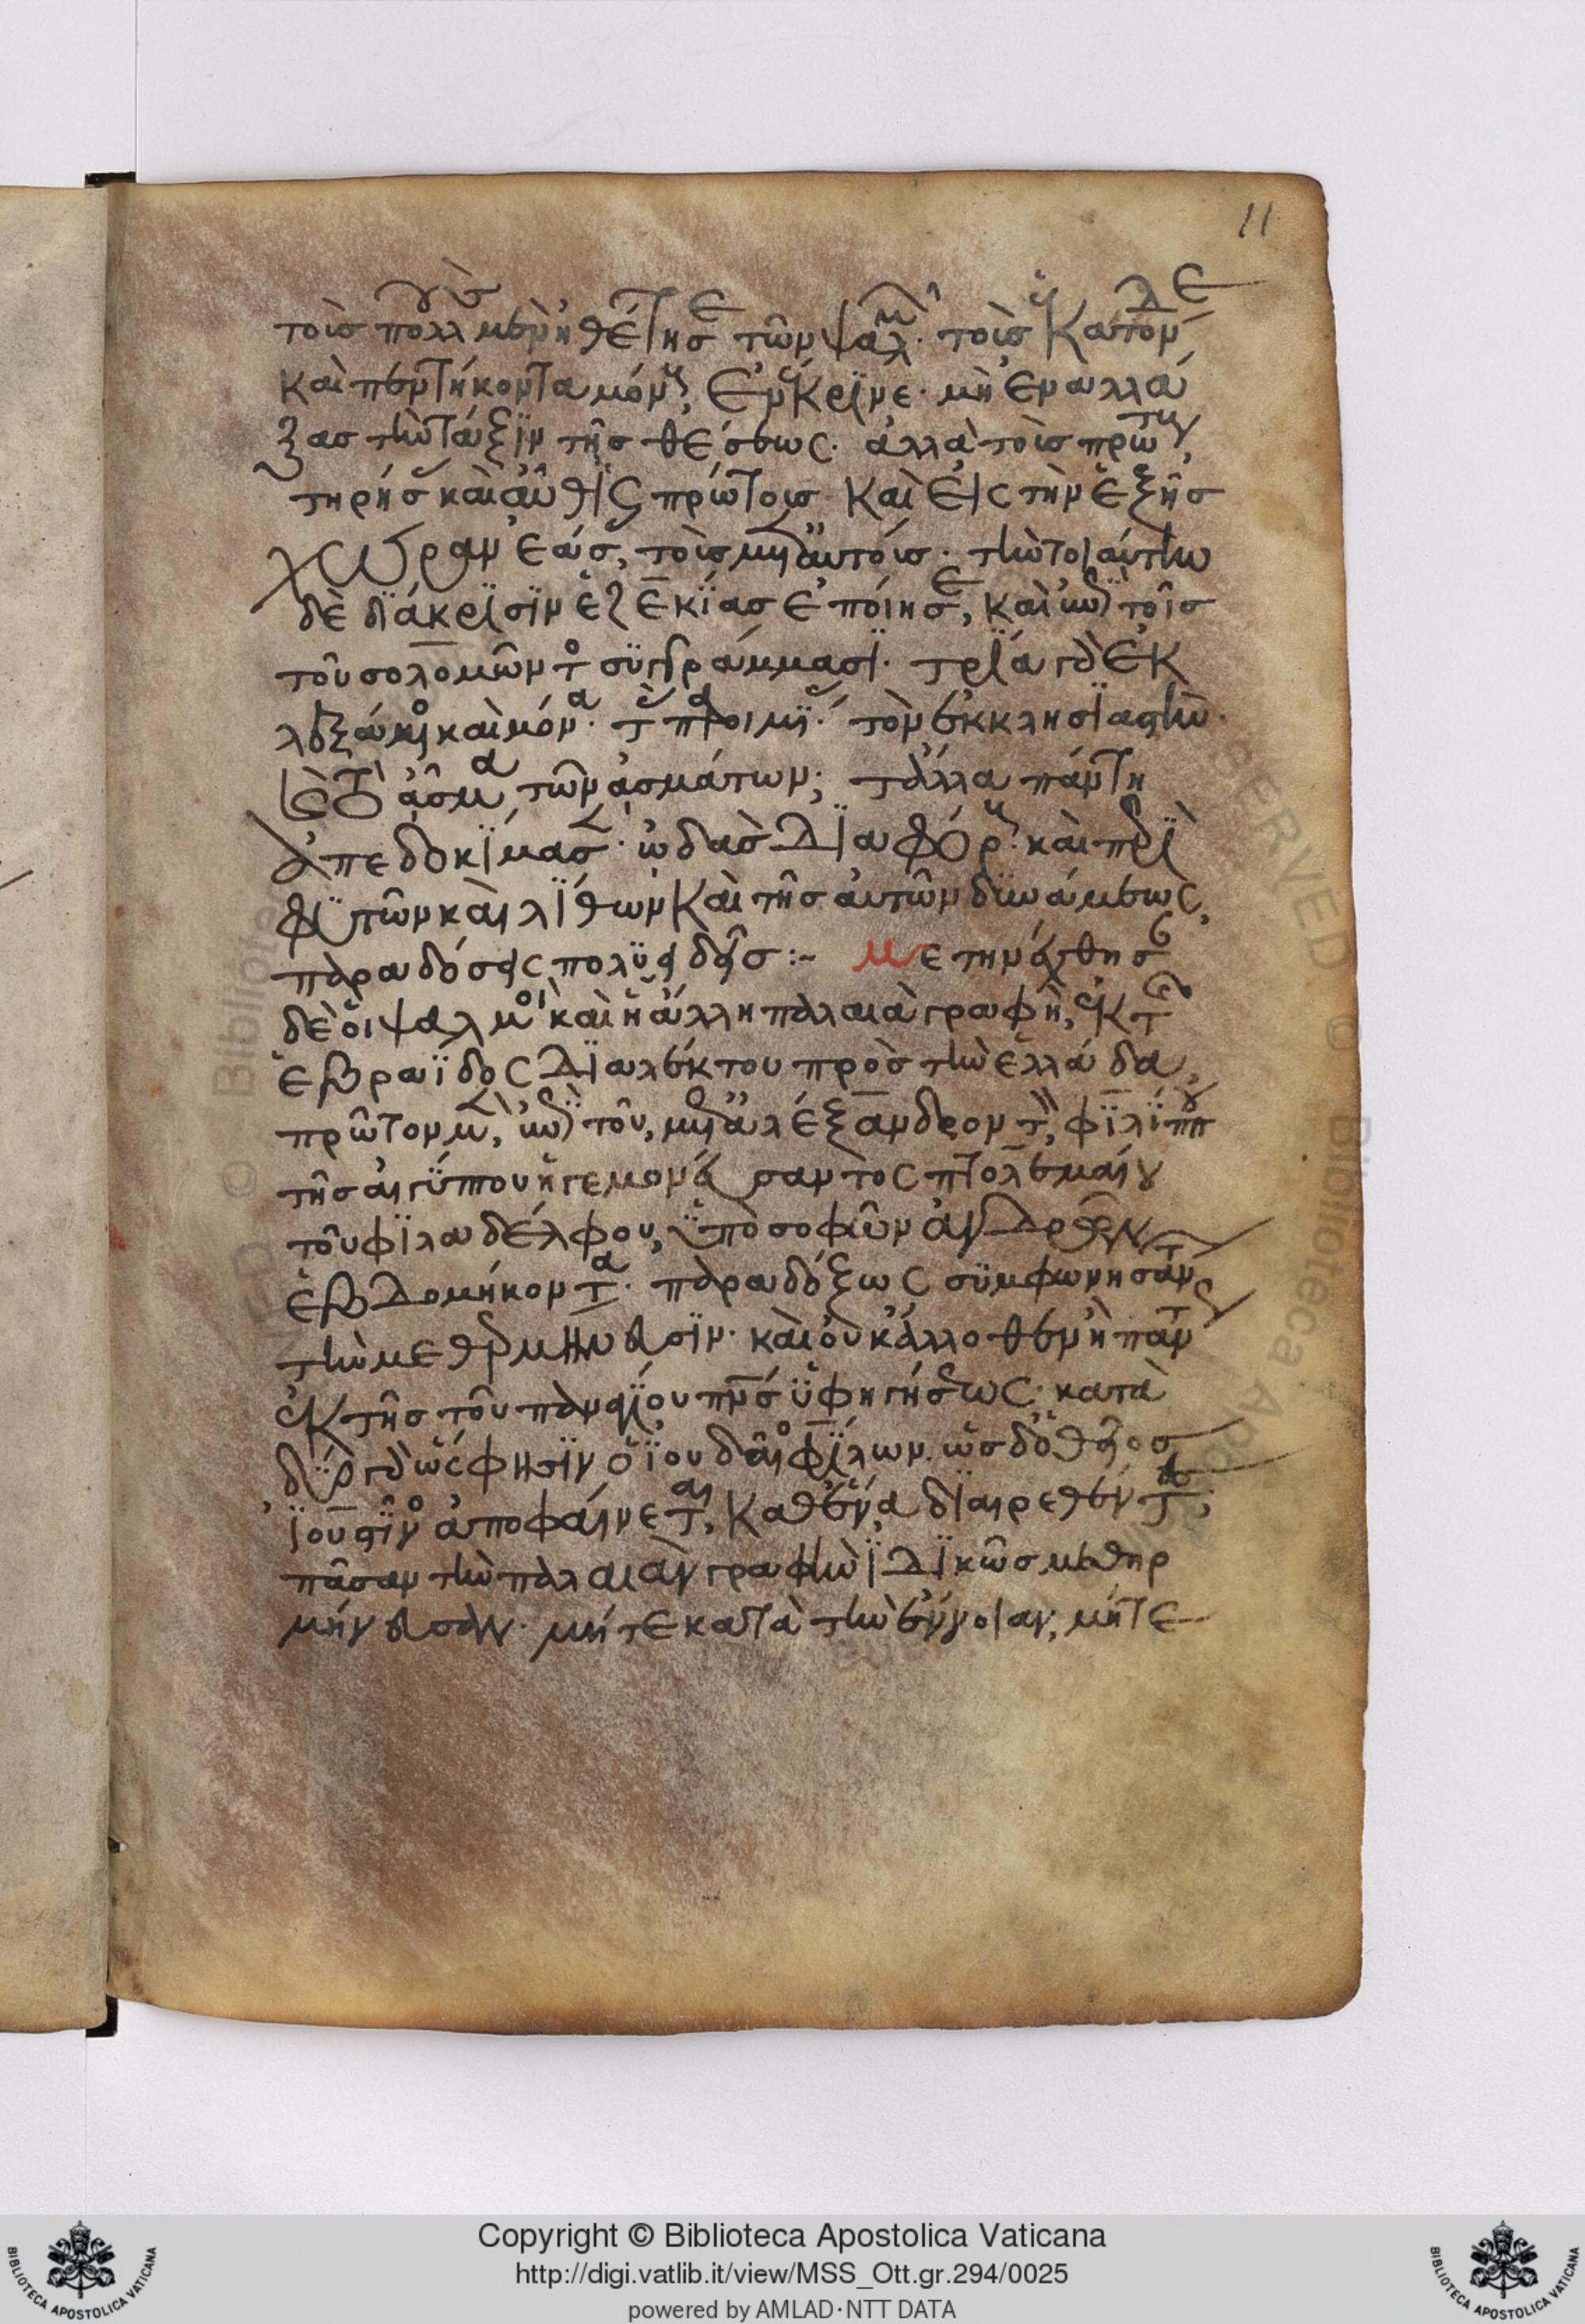 11
τοῖς πολλοὺς μὲν ἠθέτησε τῶν ψαλμῶν· τοὺς ἑκατὸν δὲ
καὶ πεντήκοντα μόνους, ἐνέκρινε· μὴ ἐναλλά
ξας τὴν τάξιν τῆς θέσεως· ἀλλὰ τοὺς πρώτους
τηρήσας καὶ αὖθις πρώτοις καὶ εἰς τὴν ἑξῆς
χώραν ἐάσας, τοὺς μετ' αὐτούς· τὴν τοιαύτην
δὲ διάκρισιν ἐζεκίας ἐποίησε, κἀν τοῖς
τοῦ σολομῶντος συγγράμμασι· τρία γὰρ ἐκ
λεξάμενος καὶ μόνα· τὰς παροιμίας· τὸν ἐκκλησιαστὴν·
καὶ τὸ ἆσμα τῶν ἀσμάτων· τἆλλα πάντη
ἀπεδοκίμασεν· ὠδὰς διαφόρους· καὶ περὶ
φυτῶν καὶ λίθων καὶ τῆς αὐτῶν δυνάμεως,
παραδόσεις πολυειδεῖς :~ μετηνέχθησαν
δὲ οἱ ψαλμοὶ καὶ ἡ ἄλλη παλαιὰ γραφὴ, ἐκ τῆς
ἑβραΐδος διαλέκτου πρὸς τὴν ἑλλάδα,
πρῶτον μὲν, ἐπὶ τοῦ, μετὰ ἀλέξανδρον τὸν φιλίππου
τῆς αἰγύπτου ἡγεμονεύσαντος πτολεμαίου
τοῦ φιλαδέλφου, ὑπὸ σοφῶν ἀνδρῶν
ἑβδομήκοντα· παραδόξως συμφωνησάντων
τὴν μεθερμήνευσιν· καὶ οὐκ ἄλλοθεν ἢ πάντως
ἐκ τῆς τοῦ παναγίου πνς ὑφηγήσεως· κατὰ
δύο γὰρ ὥς φησιν ὁ ἰουδαῖος φίλων· ὡς δὲ ὁ θεῖος
ἰουστῖνος ἀποφαίνεται, καθένα διαιρεθέντες·
πᾶσαν τὴν παλαιὰν γραφὴν ἰδικῶς μεθηρ
μήνευσαν· μήτε κατὰ τὴν ἔννοιαν, μήτε
Copyright © Biblioteca Apostolica Vaticana
http://digi.vatlib.it/view/MSS_Ott.gr.294/0025
powered by AMLAD·NTT DATA